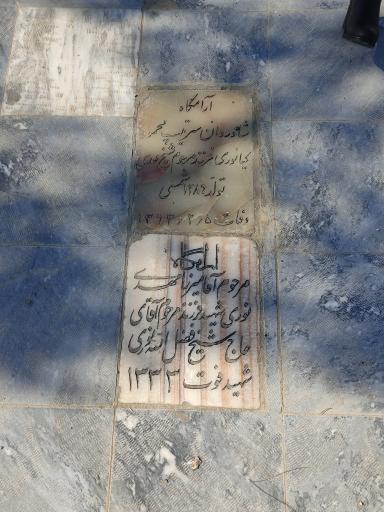 آرامگاه
شادروان سرتیپ محمد
کیانوری فرزند مرحوم شیخ نوری
تولد ۱۲۸۶ شمسی
وفات ۱۳۶۳/۲/۵
آرامگاه
مرحوم آقا میرزا مهدی
نوری شهید فرزند مرحوم آقای
حاج شیخ فضل الله نوری
شهید فوت ۱۳۳۲